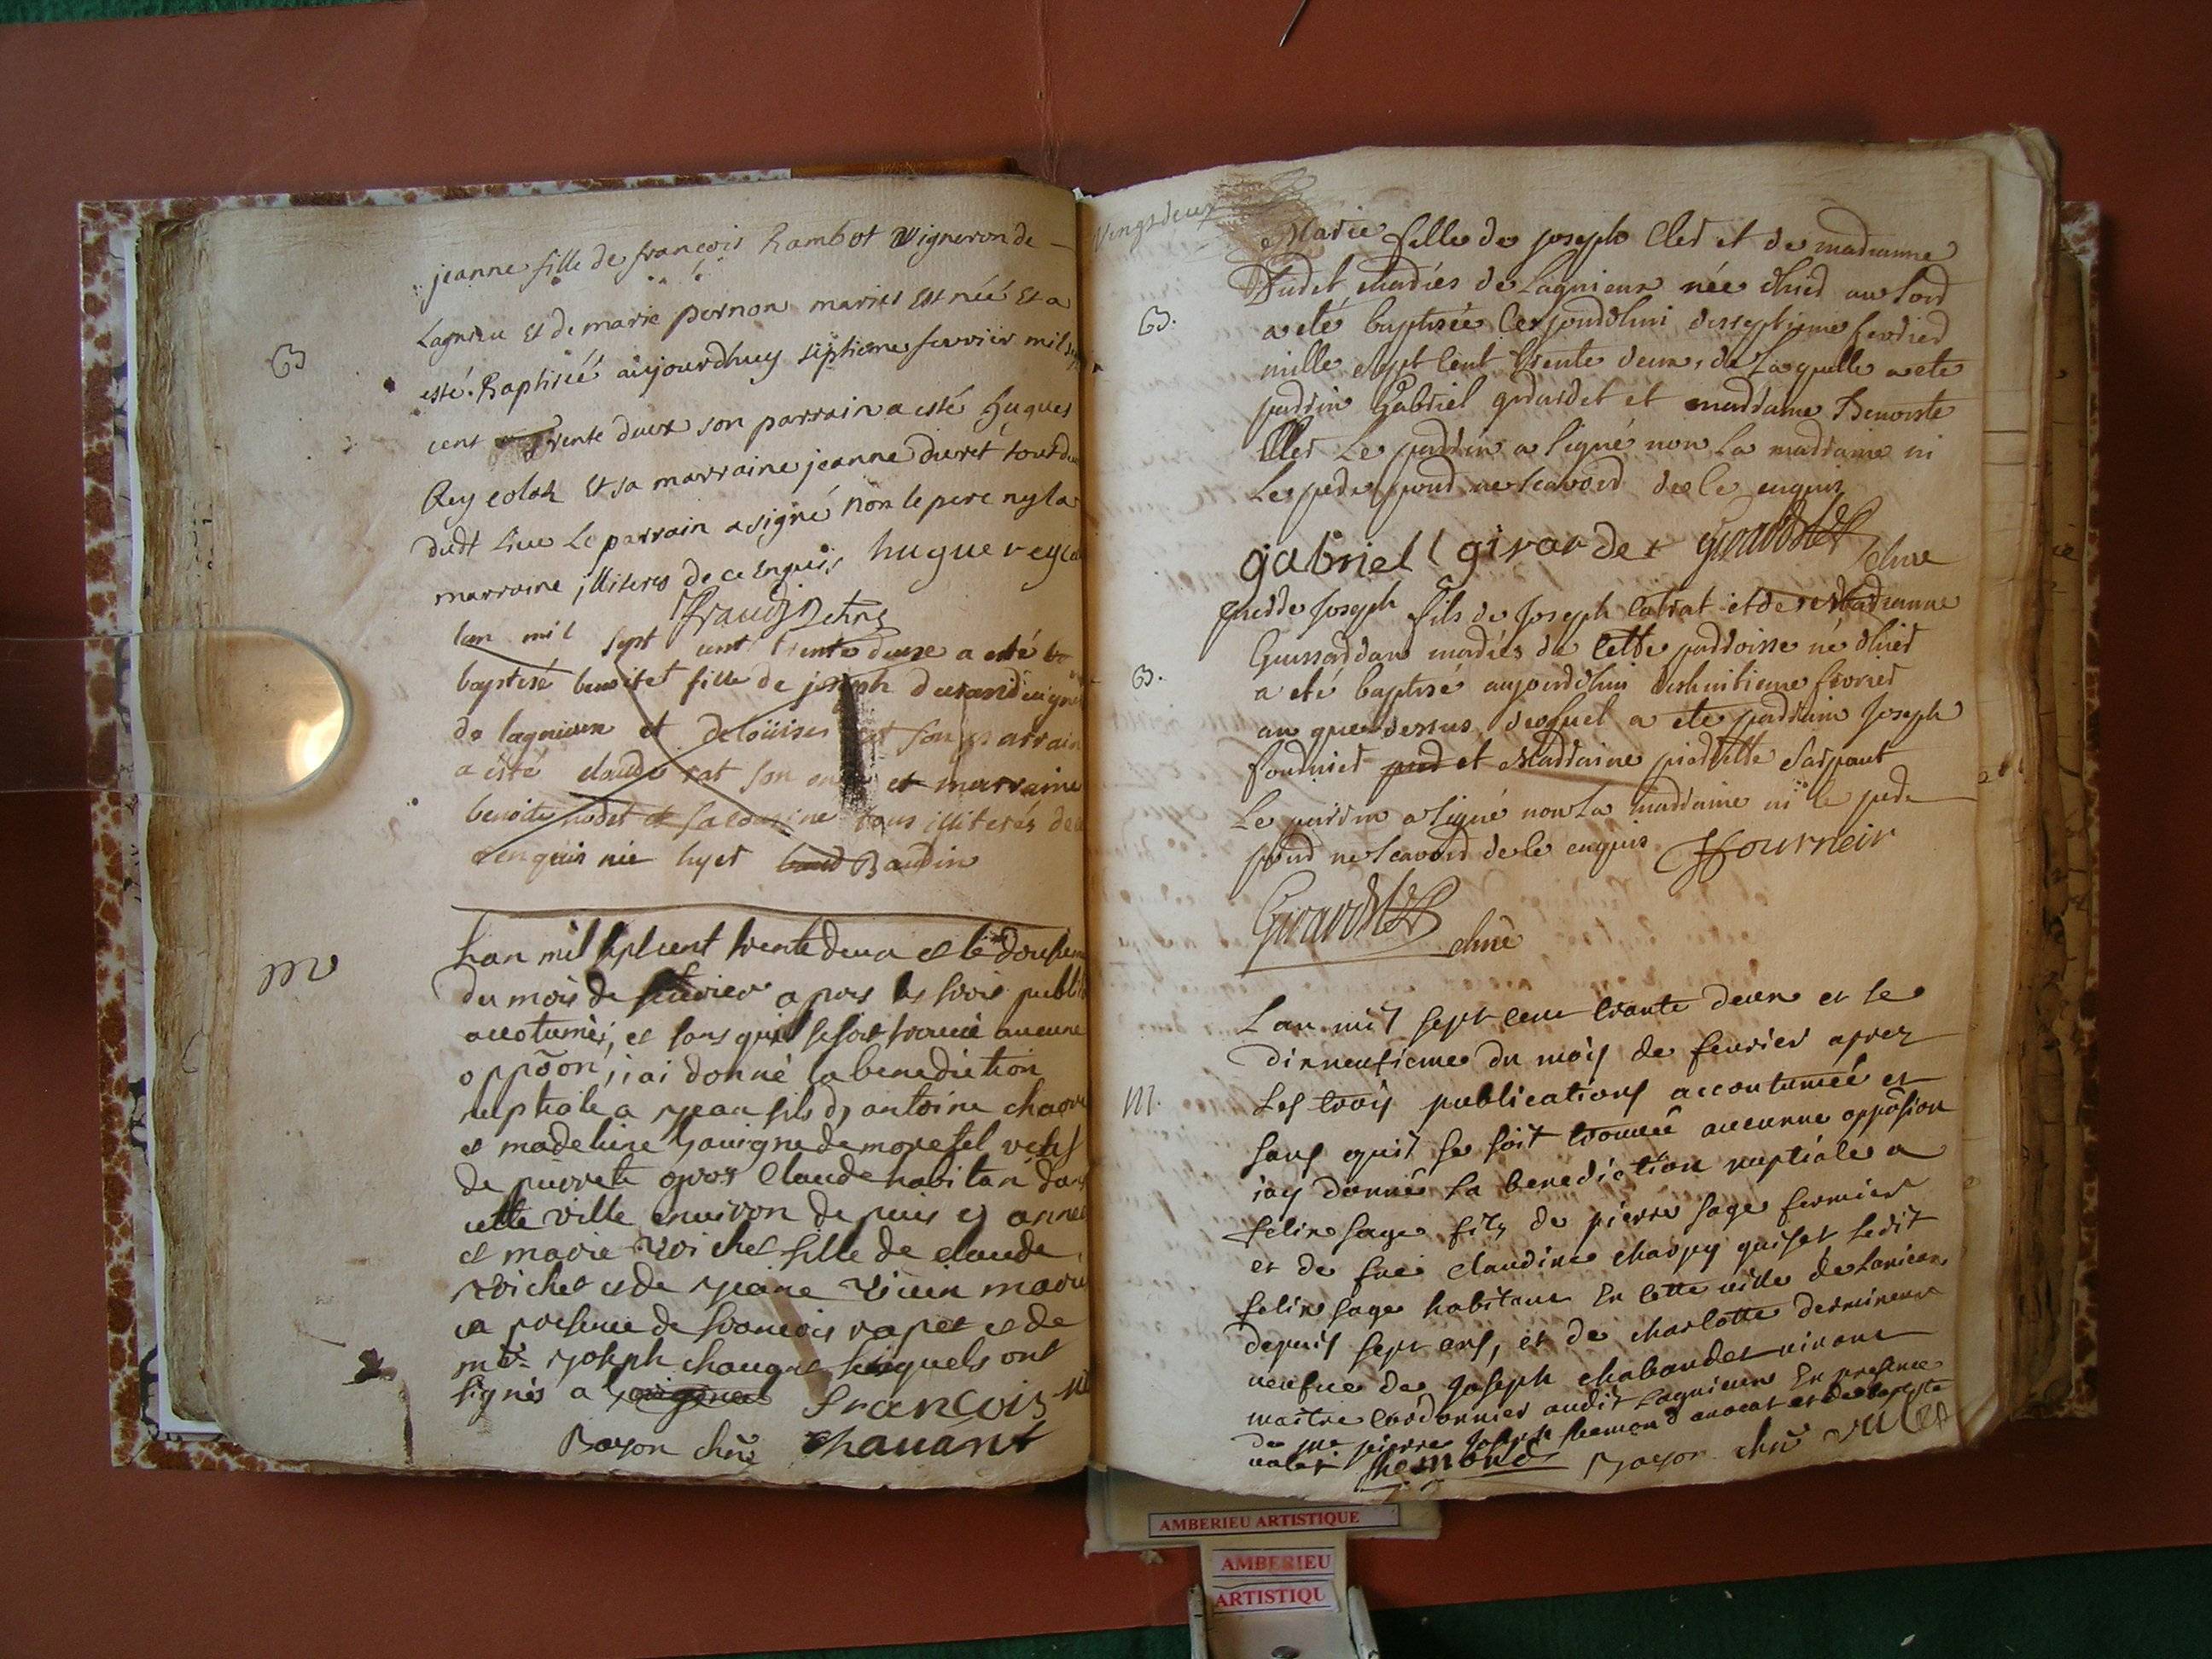 B
jeanne fille de francois Rambot Vigneron de
Lagnieu Et de marie pernon mariés Est néé Et a
esté Baptiséé aujourdhuy siptieme fevrier mil sept
cent trente deux son parrain a esté hugues
Rey colar Et sa marraine jeanne duret tout du
dudt Lieu Le parrain a signé non le pere ny la
marraine jlliteres de ce Enquis hugue reycol
lan mil sept cent trente deuxe a esté
baptisé benoitet fille de joseph durand
de lagnieux et delouises rat son parrain
a esté claude rat son et marraine
benoite nodet tous illiterés de
cenquis nie hyer Baudin
M
Lan mil sept cent trente deux et le douzieme
du mois de fevrier apres les trois publi
accotumés, et sans qu'il se soit trouvé aucune
oppõon, j'ai donné la benediction
nuptiale a jean fils d antoine
et madeleine de morestel veuf
de pierrete gros Claude habitant dans
cette ville environ depuis 9 année
et marie Richet fille de claude
Richet et de jeane vivin
en presence de francois rapet et de
mr joseph chauant lesquels ont
signés a francois
Bayon chñe chauant
Vingt deux
B.
Marie fille de joseph Cler et de marianne
mariés de Lagnieux née hier au soir
a eté baptisée cejourdhui disseptieme fevrier
mille sept cent trente deux, de Laquelle a eté
parrin Gabriel girardet et marraine Benoite
Cler Le parrin a signé non La marraine ni
Le pere pour ne scavoir de ce enquis
gabriell girardet Girardet chne
B.
pierre Joseph fils de Joseph Catrat et de Marianne
mariés de cette parroisse né hier
a eté baptisé aujourdhui dishuitieme fevrier
an que dessus, duquel a eté parrain Joseph
fournier et Marraine pierrette
Le parrin a signé non La marraine ni le pere
pour ne scavoir de ce enquis JFourneir
Girardet chne
M.
Lan mil sept cent trante deux et le
dixneufieme du mois de fevrier aprez
Les trois publications accoutumée et
sans quil se soit trouvée aucunne oppõsion
jay donné la benediction nuptiale a
felix sage fils de pierre sage fermier
et de feüe claudine charpy
felix sage habitant En cette ville de Lanieu
depuis sept ans, et de charlotte
veufve de joseph chabaudet vivant
maitre cordonnier audit Lagnieux En presence
de me pierre joseph hemond avocat et de baptiste
valet hemond Bayon chñe valet
AMBERIEU ARTISTIQUE
AMBERIEU
ARTISTIQU